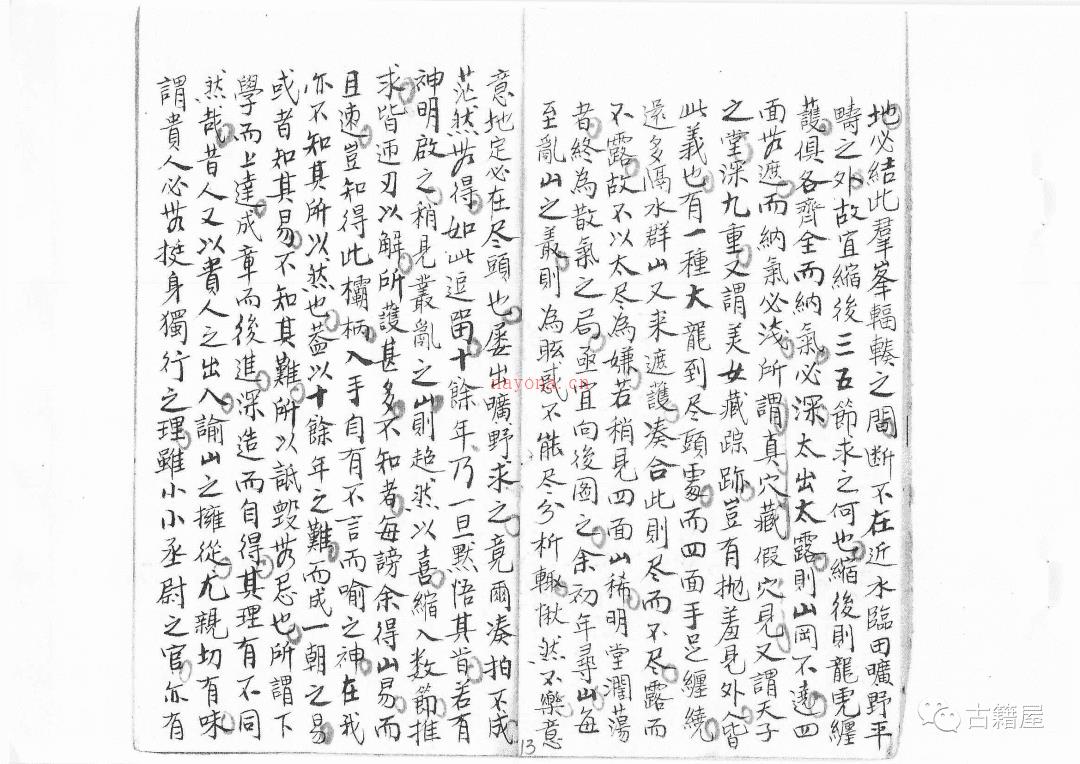 地必結此羣峯輻輳之間断不在近水臨田曠野平
疇之外故宜縮後三五節求之何也縮後則龍虎纏
護俱各齊全而納氣必深太出太露則山岡不逹四
面无遮而納氣必淺所謂真穴藏假穴見又謂天子
之堂深九重又謂美女藏踪跡豈有抛羞見外人皆
此義也有一種大龍到尽頭處而四面手足纏繞
還多隔水群山又来遮護凑合此則尽而不尽露而
不露故不以太尽為嫌若稍見四面山稀明堂濶蕩
者終為散氣之局亟宜向後圖之余初年尋山每
至亂山之叢則為眩惑不能尽分析輙愀然不樂意
意地定必在尽頭也屡出曠野求之竟爾凑拍不成
茫然无得如此逗留十餘年乃一旦默悟其旨若有
神明啟之稍見叢亂之山則超然以喜縮入数節推
求皆迎刃以解所護甚多不知者每謗余得山易而
且速豈知得此欛柄入手自有不言而喻之神在我
亦不知其所以然也葢以十餘年之難而成一朝之易
或者知其易不知其難所以詆毀无忌也所謂下
學而上達成章而後進深造而自得其理有不同
然哉昔人又以貴人之出入諭山之擁從尤親切有味
謂貴人必无挺身獨行之理雖小小丞尉之官亦有
13
nayong.cn
古籍屋